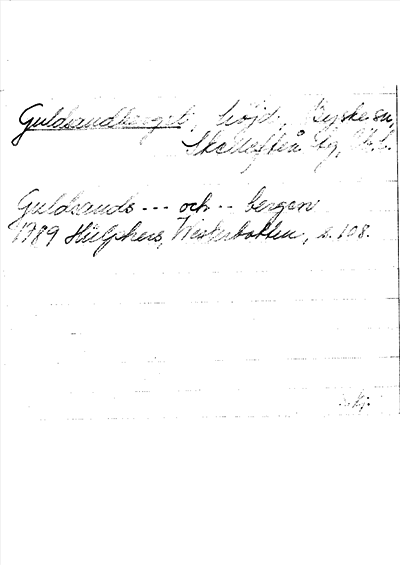 Guldsandberget, höjd, Byske sn,
Skellefteå tg, Vb.
Guldsands --- och -- bergen
1789 Hülphers, Westerbotten, s. 108.